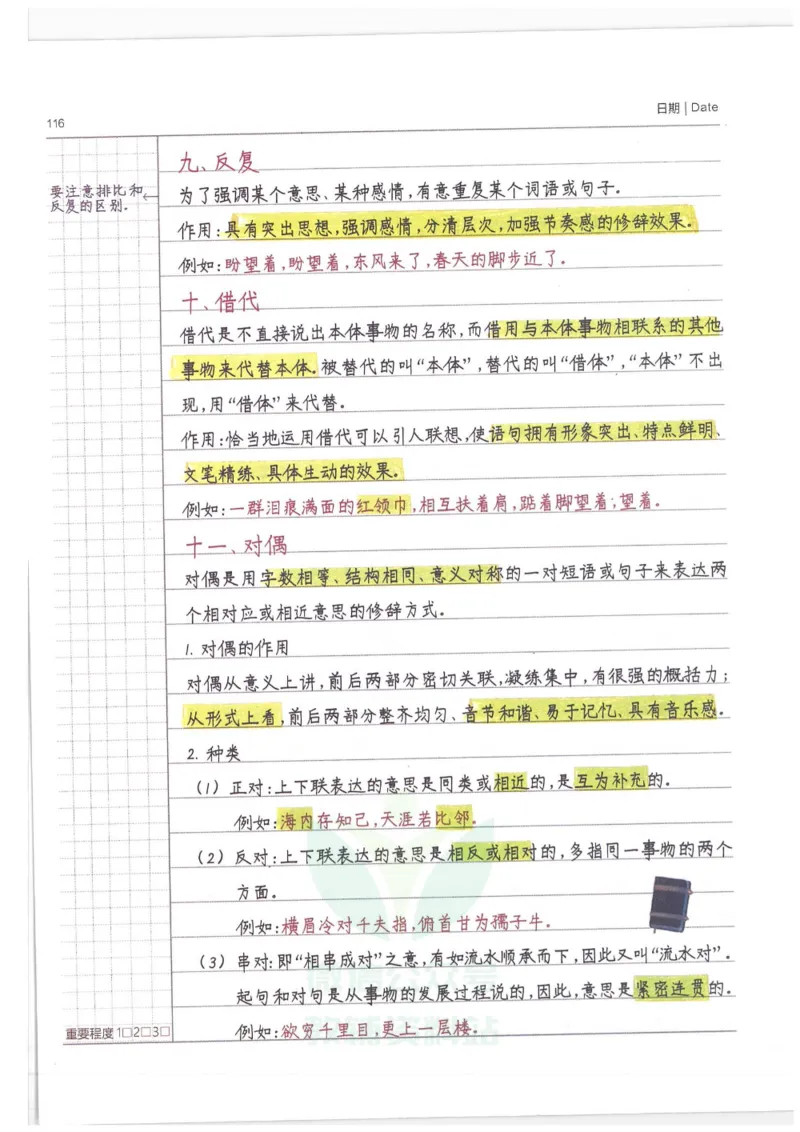 116
日期 | Date
要注意排比和
反复的区别.
九、反复
为了强调某个意思、某种感情,有意重复某个词语或句子.
作用:具有突出思想,强调感情,分清层次,加强节奏感的修辞效果.
例如:盼望着,盼望着,东风来了,春天的脚步近了.
十、借代
借代是不直接说出本体事物的名称,而借用与本体事物相联系的其他
事物来代替本体.被替代的叫“本体”,替代的叫“借体”,“本体”不出
现,用“借体”来代替.
作用:恰当地运用借代可以引人联想,使语句拥有形象突出、特点鲜明、
文笔精练、具体生动的效果.
例如:一群泪痕满面的红领巾,相互扶着肩,踮着脚望着;望着.
十一、对偶
对偶是用字数相等、结构相同、意义对称的一对短语或句子来表达两
个相对应或相近意思的修辞方式.
1. 对偶的作用
对偶从意义上讲,前后两部分密切关联,凝练集中,有很强的概括力;
从形式上看,前后两部分整齐均匀、音节和谐、易于记忆、具有音乐感.
2. 种类
(1) 正对:上下联表达的意思是同类或相近的,是互为补充的.
例如:海内存知己,天涯若比邻.
(2) 反对:上下联表达的意思是相反或相对的,多指同一事物的两个
方面.
例如:横眉冷对千夫指,俯首甘为孺子牛.
(3) 串对:即“相串成对”之意,有如流水顺承而下,因此又叫“流水对”.
起句和对句是从事物的发展过程说的,因此,意思是紧密连贯的.
例如:欲穷千里目,更上一层楼.
重要程度 1□2□3□